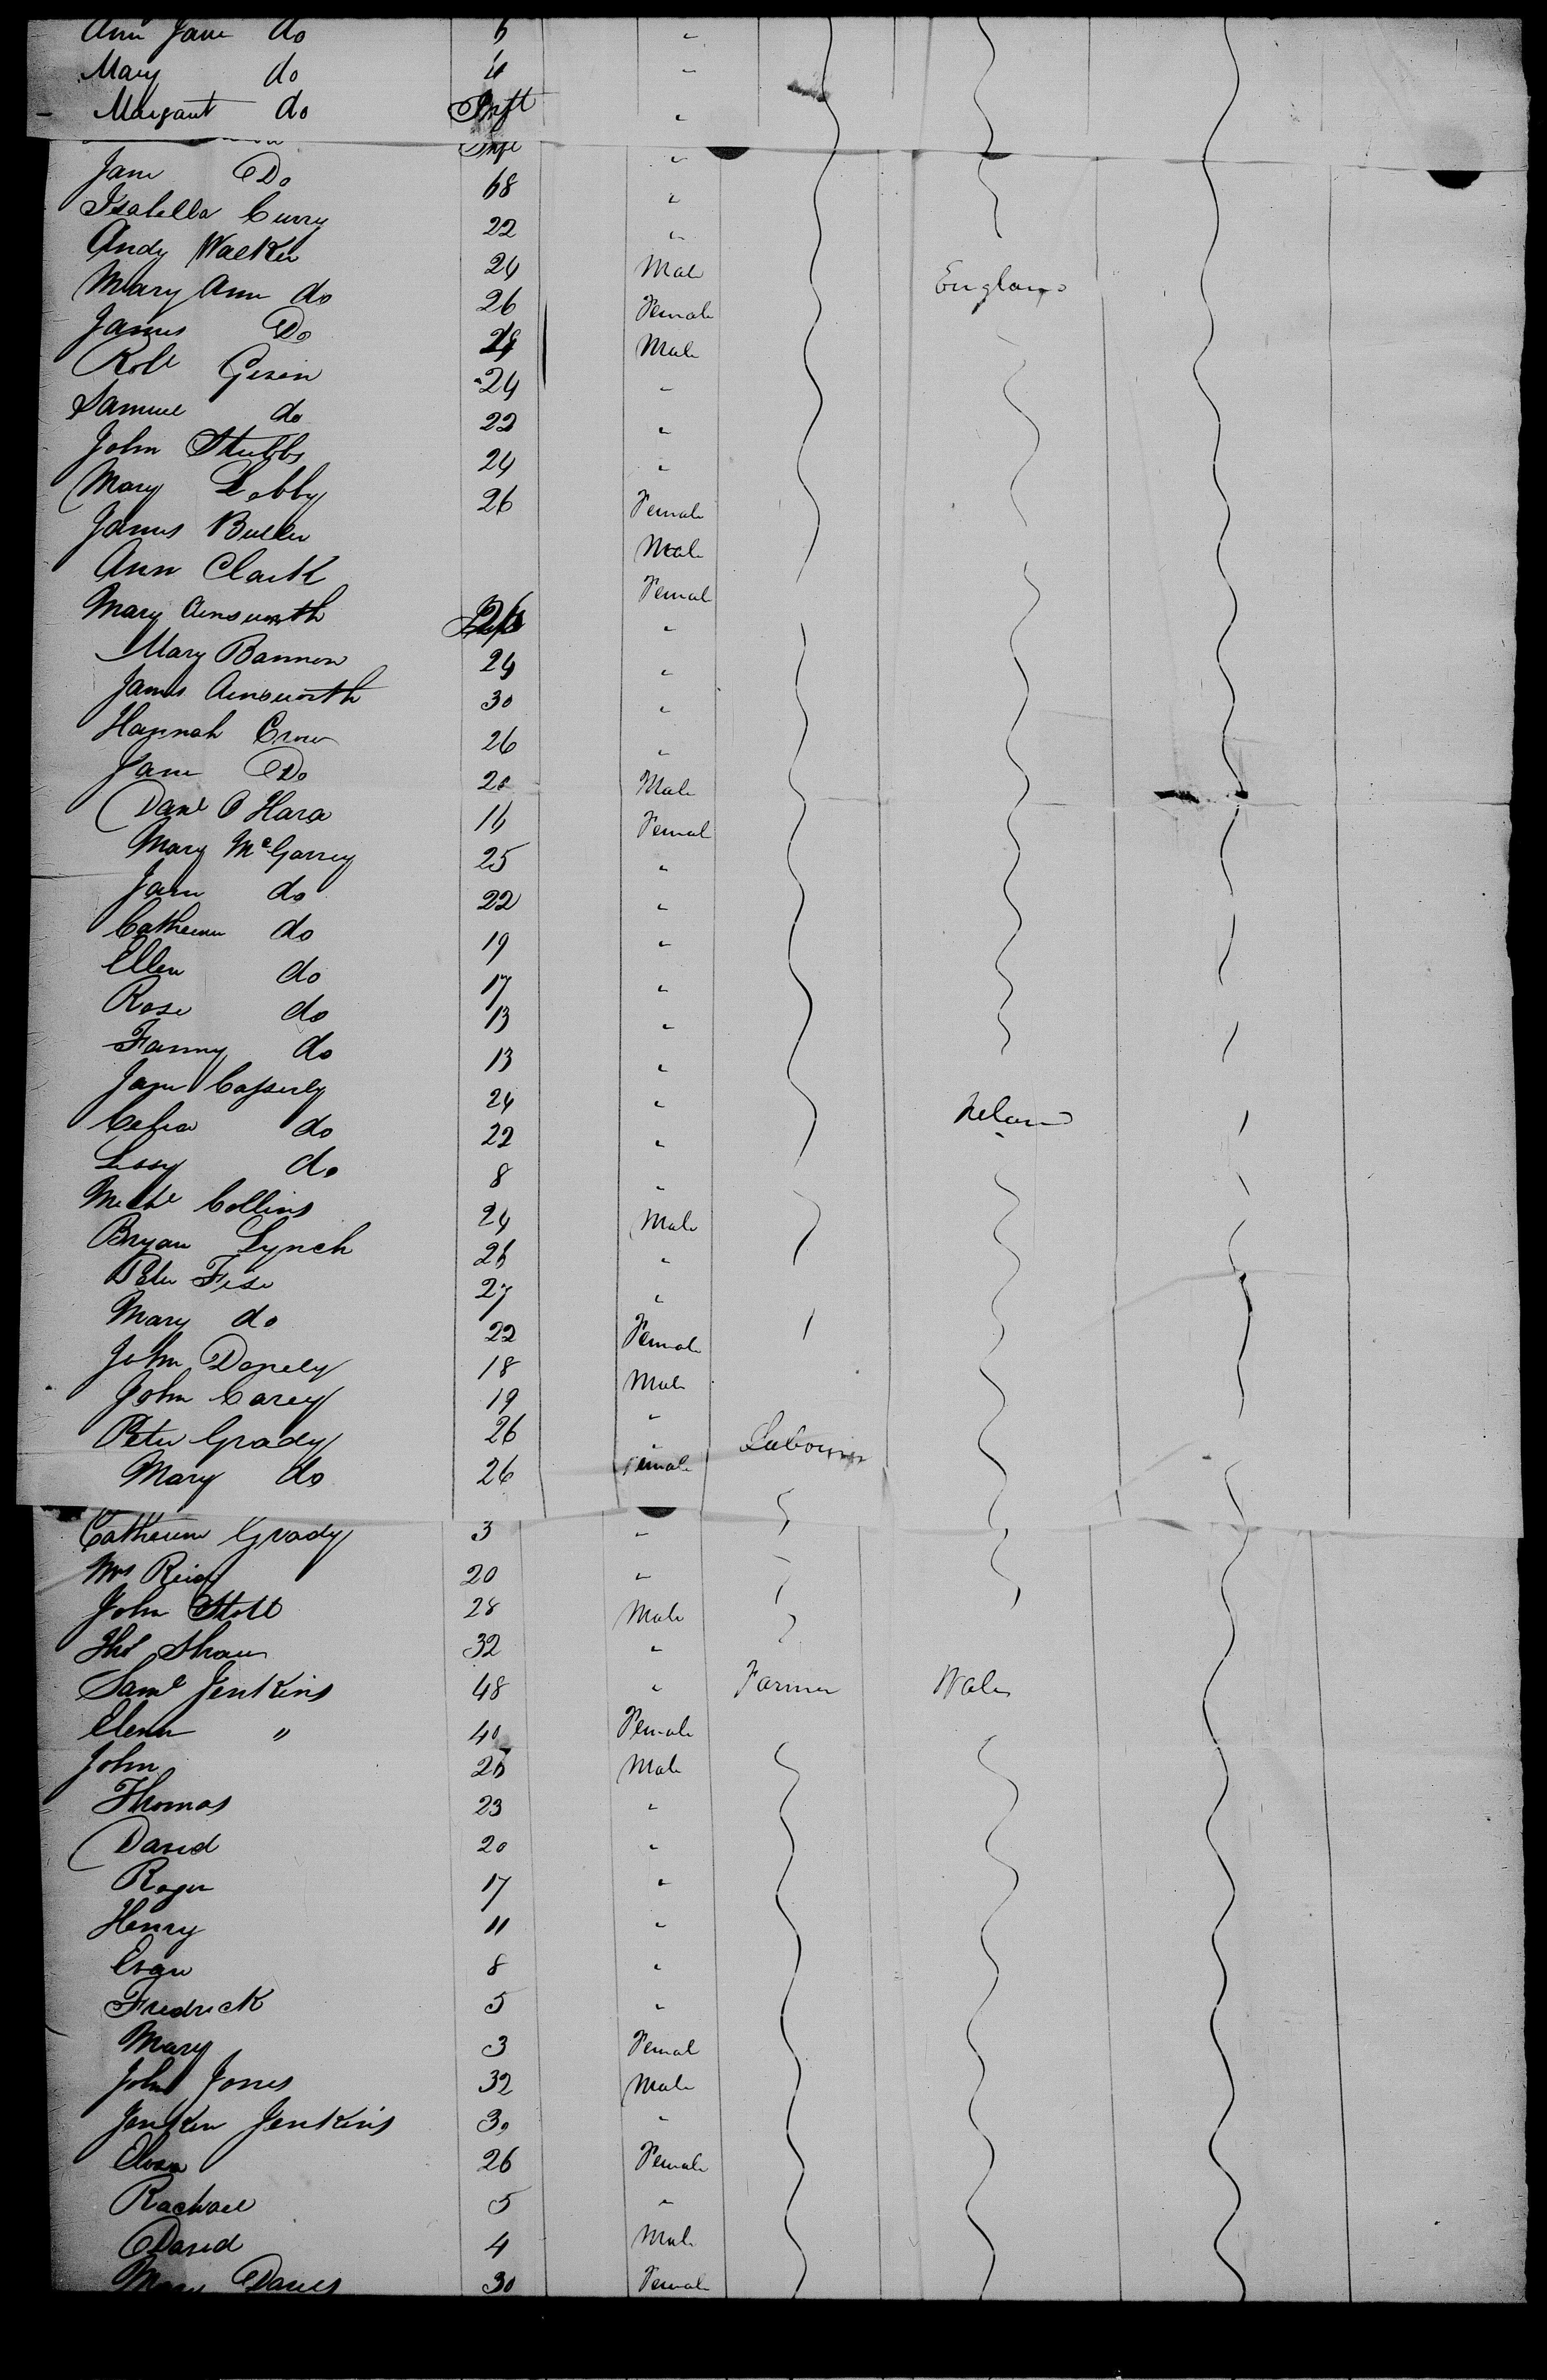 Ann Jane do 6 "
Mary do 4 "
Margaret do Inft "
Infe "
Jane Do 68 "
Isabella Curry 22 "
Andy Walker 24 Male England
Mary Ann do 26 Female
James Do 24 Male
Robt Green 24 "
Samuel do 22 "
John Stubbs 24 "
Mary Lobby 26 Female
James Butler Male
Ann Clark Female
Mary Ainsworth 26 "
Mary Bannon 24 "
James Ainsworth 30 "
Hannah Crow 26 "
Jane Do 20 Male
Danl O Hara 16 Femal
Mary McGarrey 25 "
Jane do 22 "
Catherine do 19 "
Ellen do 17 "
Rose do 13 "
Fanny do 13 "
Jane Casserly 24 " Ireland
Celia do 22 "
Lissy do 8 "
Michl Collins 24 Male
Bryan Lynch 26 "
Peter 27 "
Mary do 22 Female
John Donely 18 Male
John Carey 19 "
Peter Grady 26 " Labourer
Mary do 26 Female
Catherine Grady 3 "
Mrs Reid 20 "
John Stott 28 Male
Thos Shaw 32 "
Saml Jenkins 48 " Farmer Wales
Elenn " 40 Female
John 25 Male
Thomas 23 "
David 20 "
Roger 17 "
Henry 11 "
Evan 8 "
Fredrick 5 "
Mary 3 Femal
John Jones 32 Male
Jenken Jenkins 30 "
26 Female
Rachael 5 "
David 4 Male
Mary Davies 30 Female